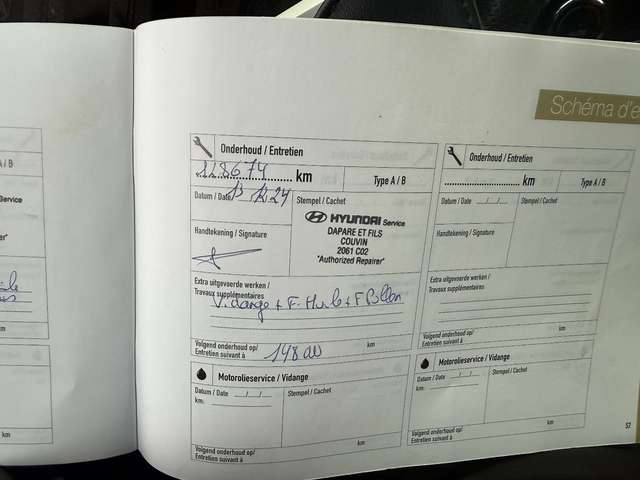 Schéma d'e
A / B
Service
km
km
Onderhoud / Entretien
128674 km
Type A / B
Datum / Date 13 12 24
Stempel / Cachet
HYUNDAI Service
DAPARE ET FILS
COUVIN
2061 C02
"Authorized Repairer"
Handtekening / Signature
Extra uitgevoerde werken /
Travaux supplémentaires
Vidange + F. Huile + F Pollen
Volgend onderhoud op/
Entretien suivant à
km
Motorolieservice / Vidange
Datum / Date / /
km:
Stempel / Cachet
Volgend onderhoud op/
Entretien suivant à
km
Onderhoud / Entretien
km
Type A / B
Datum / Date / /
Stempel / Cachet
Handtekening / Signature
Extra uitgevoerde werken /
Travaux supplémentaires
Volgend onderhoud op/
Entretien suivant à
km
Motorolieservice / Vidange
Datum / Date / /
km:
Stempel / Cachet
Volgend onderhoud op/
Entretien suivant à
km
57